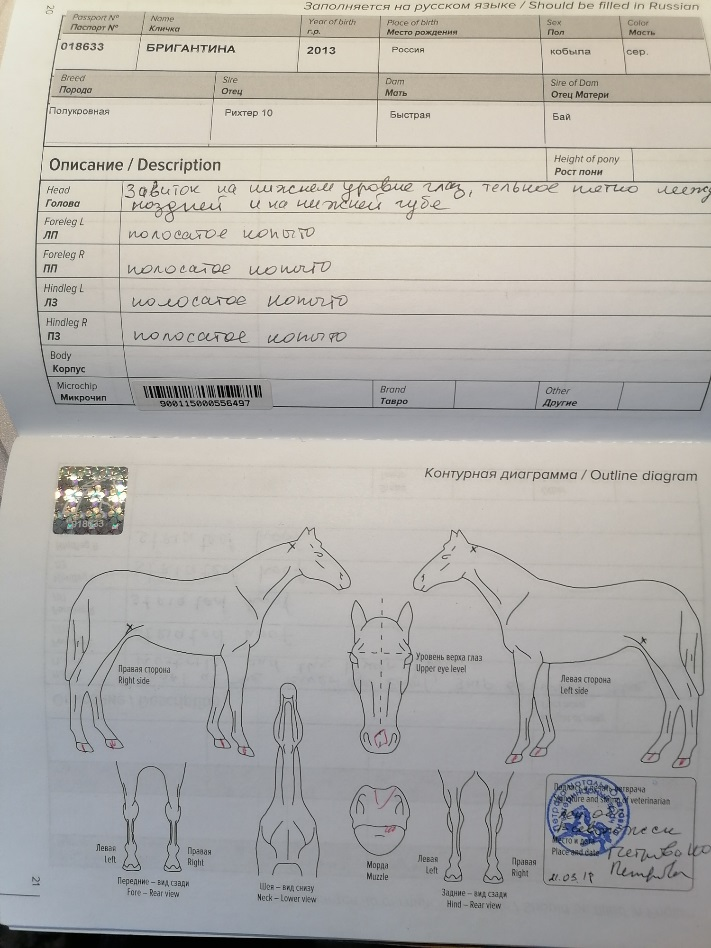 20
Заполняется на русском языке / Should be filled in Russian
Passport Nº Name Year of birth Place of birth Sex Color
Паспорт Nº Кличка г.р. Место рождения Пол Масть
018633 БРИГАНТИНА 2013 Россия кобыла сер.
Breed Sire Dam Sire of Dam
Порода Отец Мать Отец Матери
Полукровная Рихтер 10 Быстрая Бай
Описание / Description
Height of pony
Рост пони
Head
Голова
Завиток на нижнем уровне глаз, тельное пятно между
ноздрей и на нижней губе
Foreleg L
ЛП полосатое копыто
Foreleg R
ПП полосатое копыто
Hindleg L
ЛЗ полосатое копыто
Hindleg R
ПЗ полосатое копыто
Body
Корпус
Microchip Brand Other
Микрочип Тавро Другие
900115000556497
Контурная диаграмма / Outline diagram
018633
Правая сторона
Right side
Уровень верха глаз
Upper eye level
Левая сторона
Left side
Левая
Left
Правая
Right
Передние – вид сзади
Fore – Rear view
Шея – вид снизу
Neck – Lower view
Морда
Muzzle
Левая
Left
Правая
Right
Задние – вид сзади
Hind – Rear view
ветврача
and stamp of veterinarian
Место и дата
Place and date
21.03.19
21